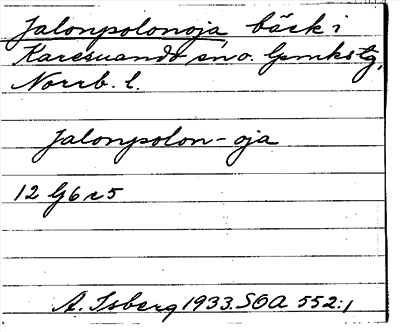 Jalonpolonoja, bäck i
Karesuando sn o. lpmkstg,
Norrb. l.
Jalonpolon-oja
12 G6 r5
A. Isberg 1933. SOA 552:1